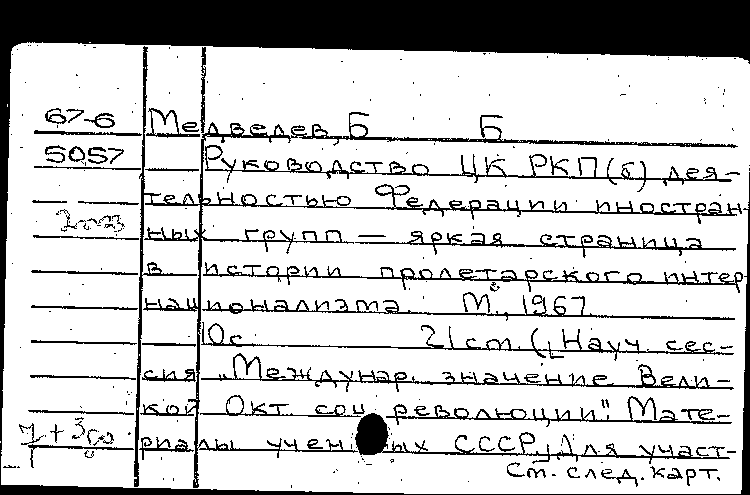 67-6 Медведев, Б Б
5057 Руководство ЦК РКП(б) дея-
тельностью Федерации иностран-
ных групп — яркая страница
в истории пролетарского интер
национализма. М., 1967
10с 21 см. (Науч. сес-
сия „Междунар. значение Вели-
кой Окт. соц революции". Мате-
риалы ученых СССР) Для участ-
См. след. карт.